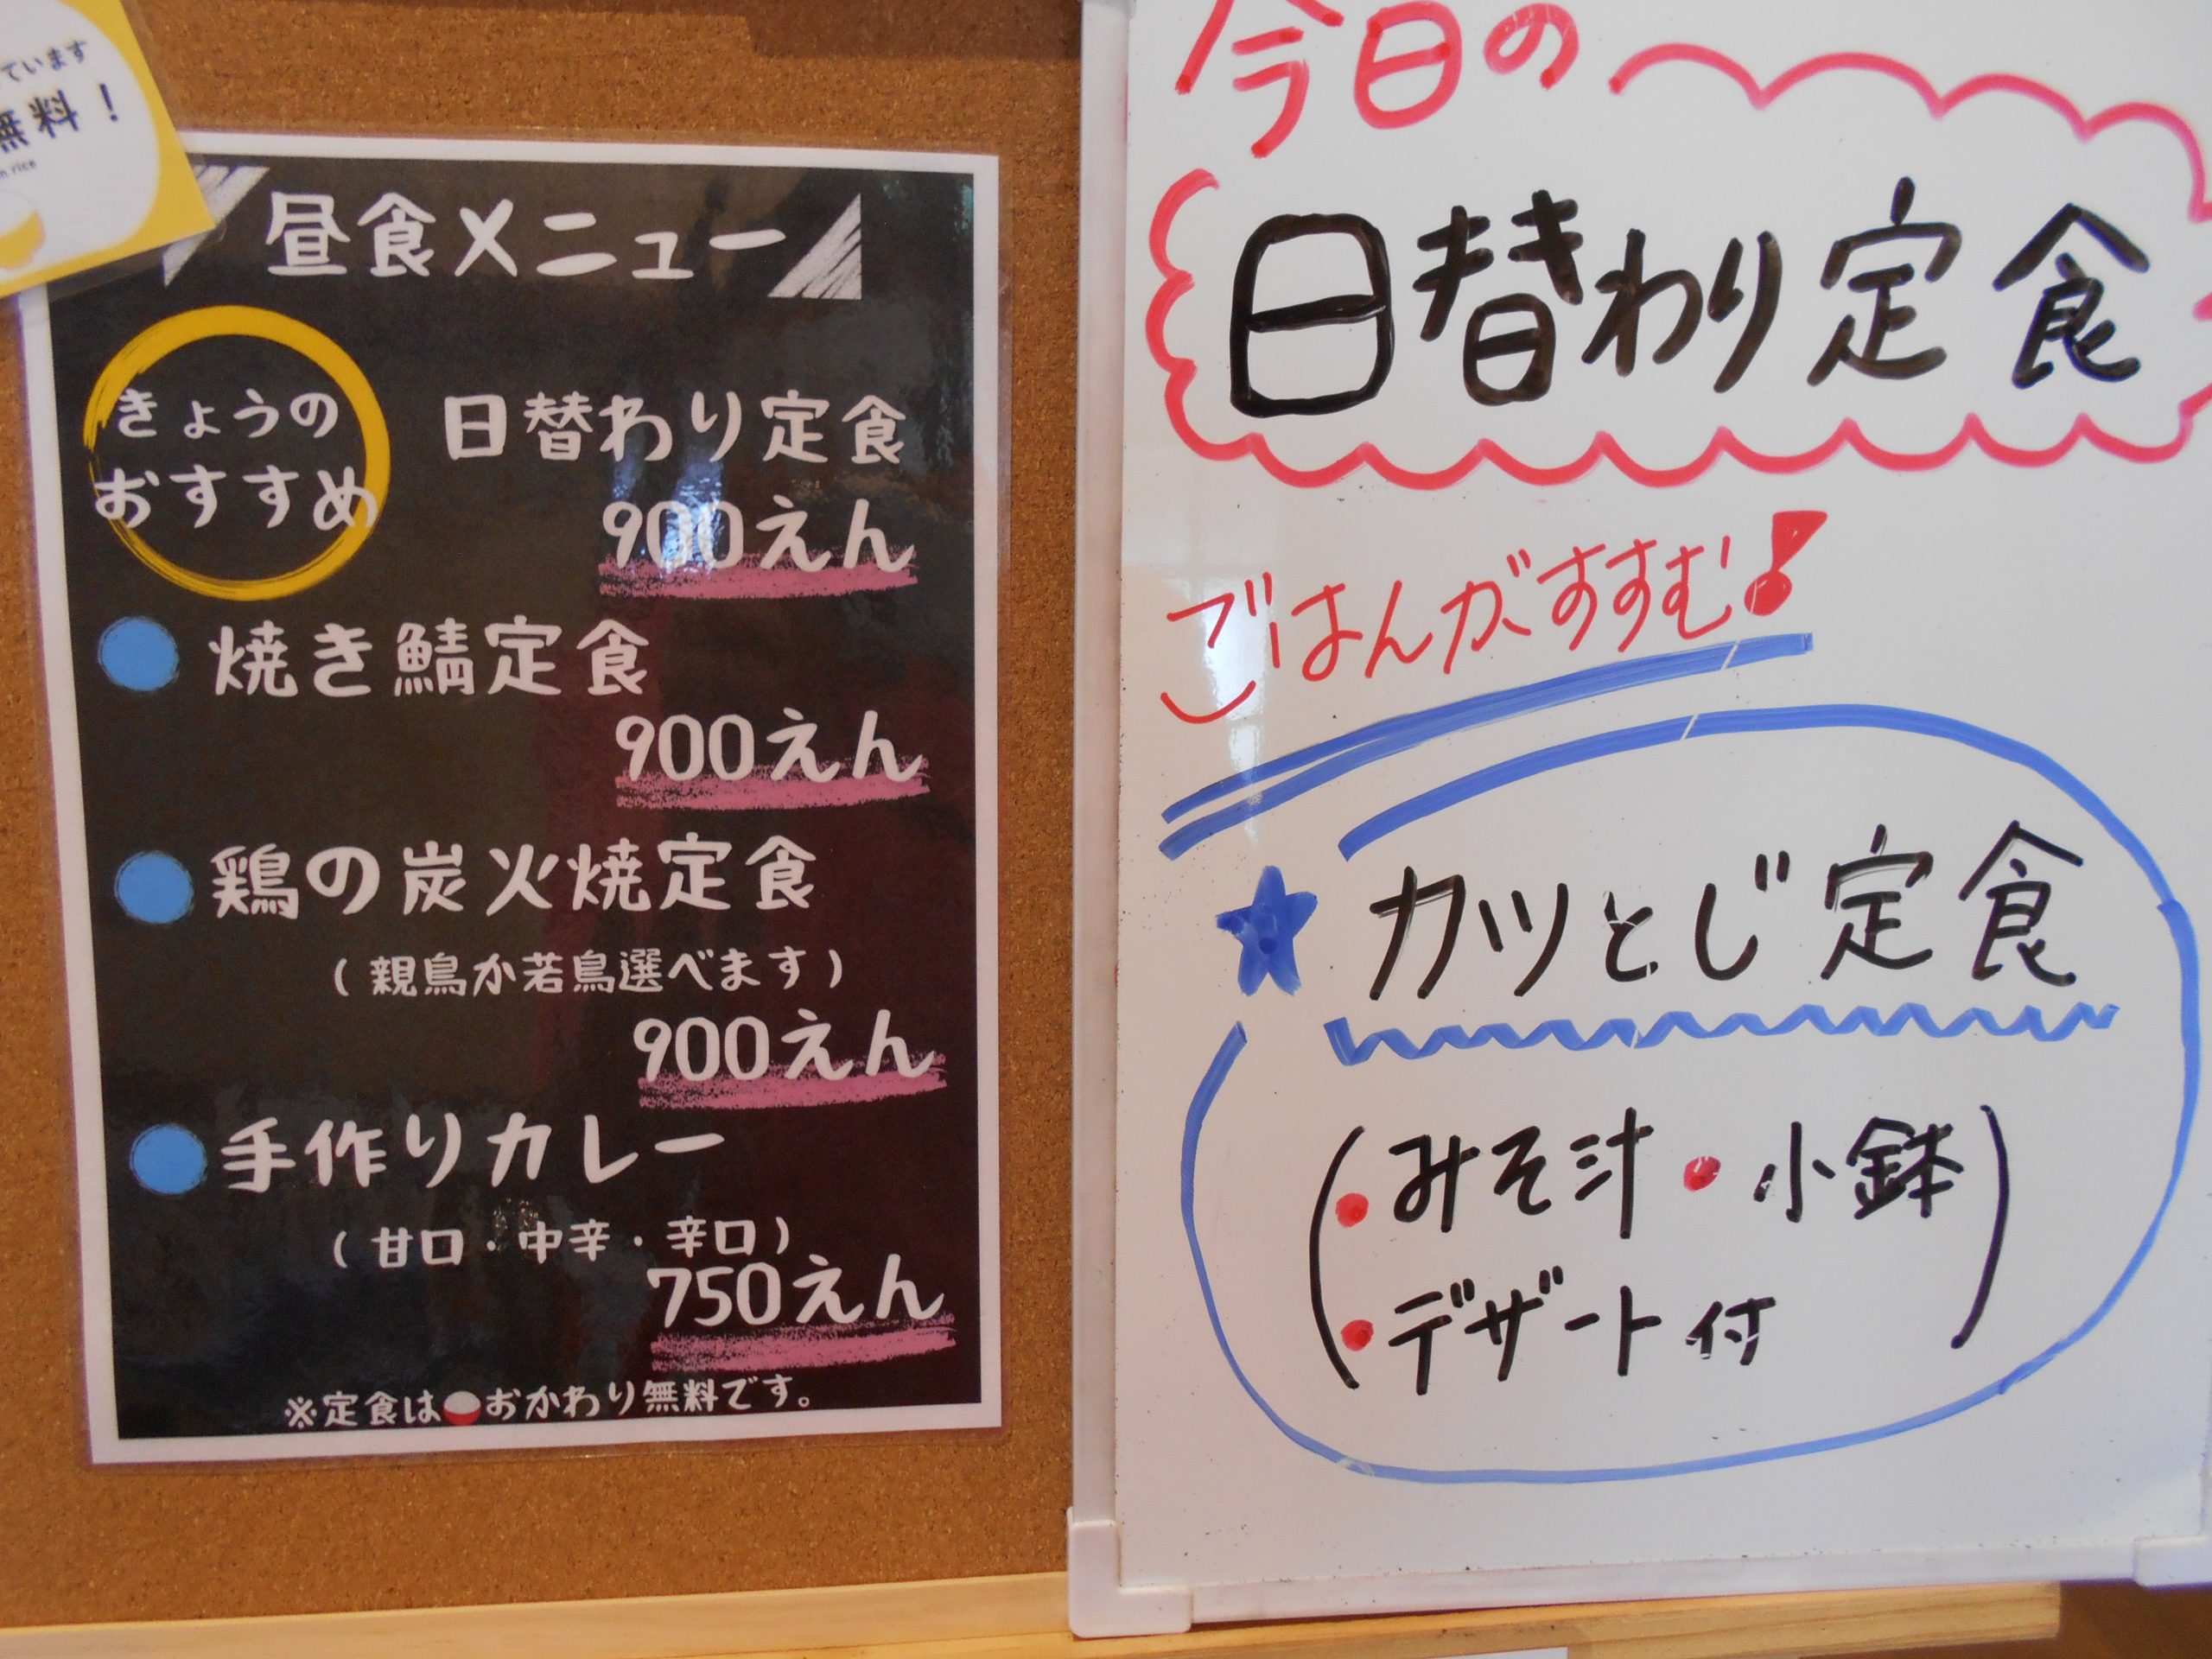 ています
無料！
rice
昼食メニュー
きょうの
おすすめ
日替わり定食
900えん
焼き鯖定食
900えん
鶏の炭火焼定食
(親鳥か若鳥選べます)
900えん
手作りカレー
(甘口・中辛・辛口)
750えん
※定食はおかわり無料です。
今日の
日替わり定食
ごはんがすすむ!
★カツとじ定食
(・みそ汁・小鉢
・デザート付)